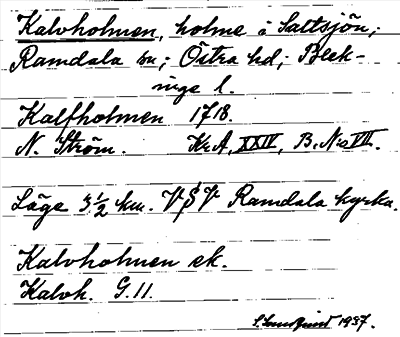 Kalvholmen, holme i Saltsjön;
Ramdala sn; Östra hd; Blek-
inge l.
Kalfholmen 1718.
N. Ström. Kr. A, XXIV, B. No VII.
Läge 3 1/2 km. VSV Ramdala kyrka.
Kalvholmen ek.
Kalvh. G.11.
1937.